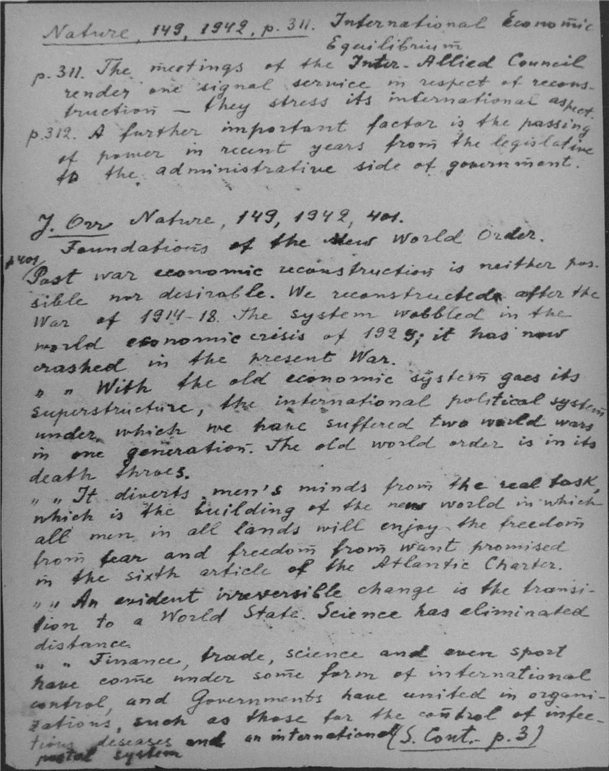 Nature, 149, 1942, p. 311. International Economic
Equilibrium
p. 311. The meetings of the Inter-Allied Council
render one signal service in respect of recons-
truction — they stress its international aspect.
p. 312. A further important factor is the passing
of power in recent years from the legislative
to the administrative side of government.
J. Orr Nature, 149, 1942, 401.
Foundations of the New World Order.
p401
Post war economic reconstruction is neither pos-
sible nor desirable. We reconstructed after the
War of 1914-18. The system wobbled in the
world economic crisis of 1929; it has now
crashed in the present War.
" " With the old economic system goes its
superstructure, the international political system
under which we have suffered two world wars
in one generation. The old world order is in its
death throes.
" " It diverts men's minds from the real task,
which is the building of the new world in which
all men in all lands will enjoy the freedom
from fear and freedom from want promised
in the sixth article of the Atlantic Charter.
" " An evident irreversible change is the transi-
tion to a World State. Science has eliminated
distance.
" " Finance, trade, science and even sport
have come under some form of international
control, and Governments have united in organi-
zations, such as those for the control of infec-
tious deseases and an international (S. Cont. p. 3)
postal system